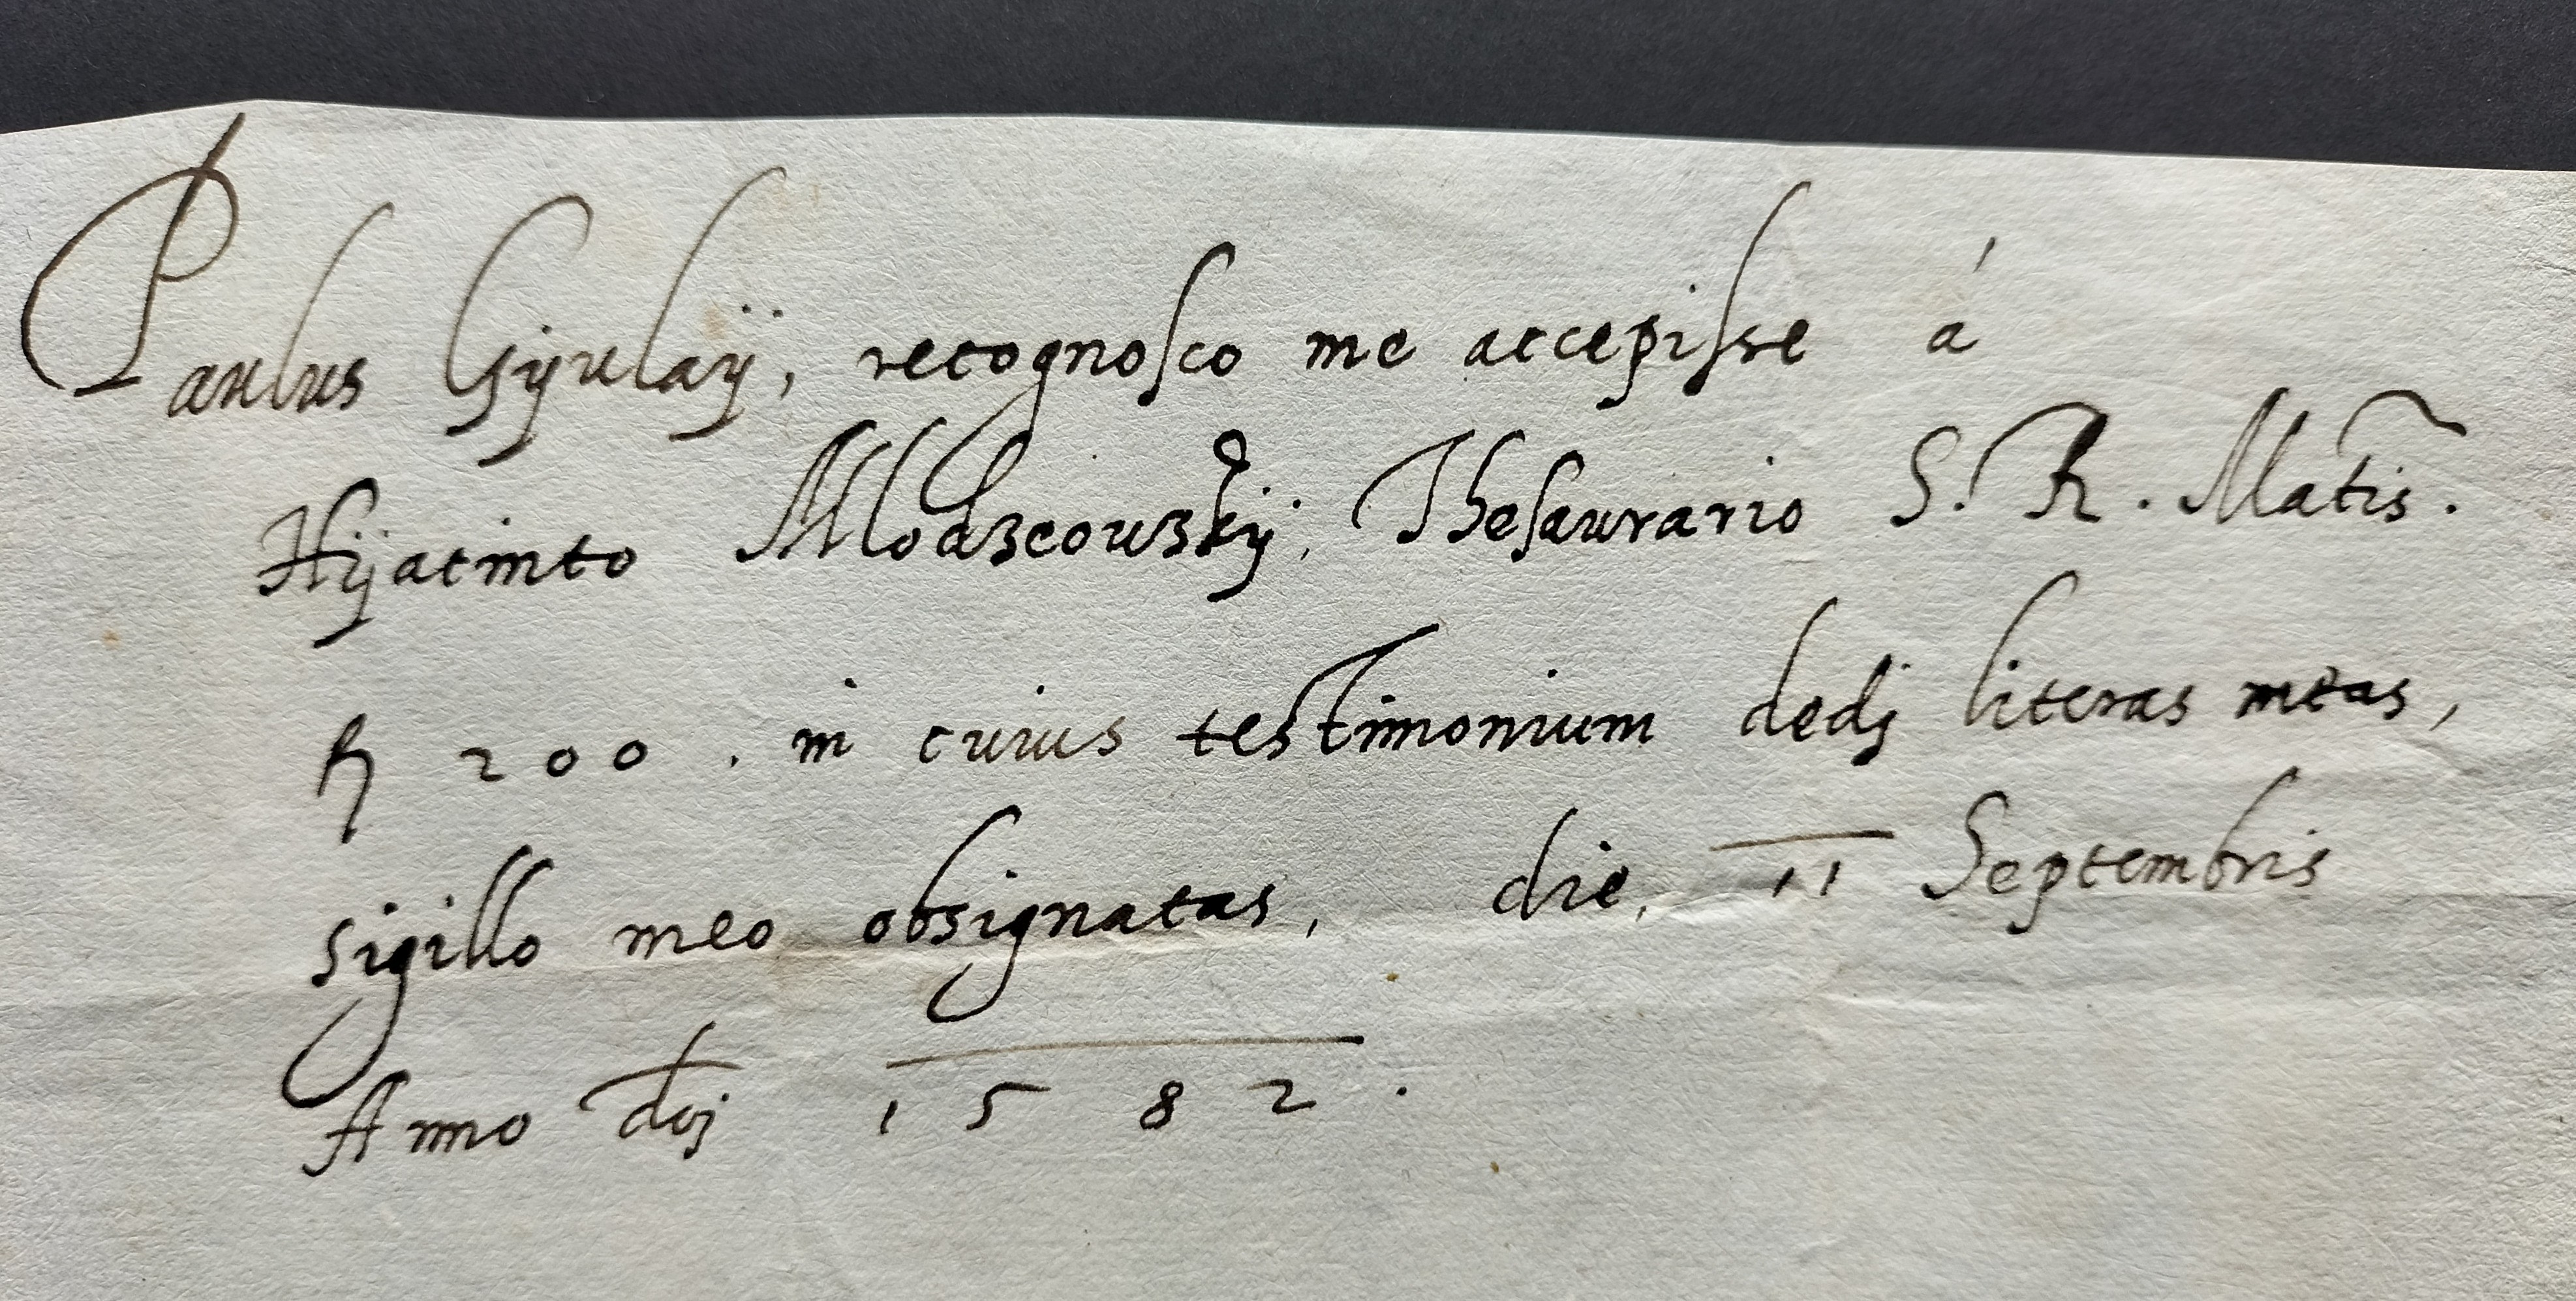 Paulus Gyulaÿ, recognosco me accepisse á
Hÿacinto Mlodzeowskÿ, Thesaurario S. R. Matis.
fl 200. in cuius testimonium dedj literas meas,
sigillo meo obsignatas, die, 11 Septembris
Anno dnj 1582.